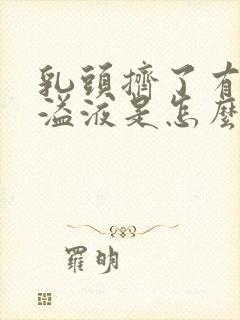 乳頭擠了有
溢液是怎麼
羅明